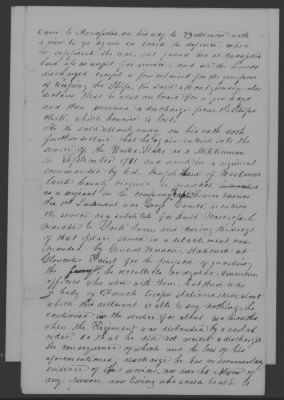 came to Annapolis, on his way to Baltimore with
a view to go again on board the defence when
he supposed she was, but found her at Annapolis
laid up as unfit for service, and all the hands
discharged except a few retained for the purpose
of keeping the Ship, the said Montgomery also
declares that he went on board for a few days
and then received a discharge from the Ship's
Clerk, which however is lost.
He the said Montgomery, on his oath doth
further declare that he again entered into the
service of the United States as a Militiaman
in September 1781 and served in a regiment
commanded by Col. Joseph of Westmoreland
County Virginia, he marched
as a sergeant in the company Capt. Thomas
the 1st Lieutenant was George he entered
the service as a substitute for he
marched to York Town, and during the siege
of that place served in a detachment com
manded by General Weedon, stationed at
Gloucester Point for the purpose of guarding
the he recollects no regular American
officers who were with them, but there was
a body of French troops stationed there about
which this declarant is able to say nothing, he
continued in the service for about two months
when the Regiment was disbanded by a verbal
order, so that he did not receive a discharge
In consequence of which and the loss of his
aforementioned discharge he has no documentary
evidence of his service, nor does he know of
any person now living who would be able to